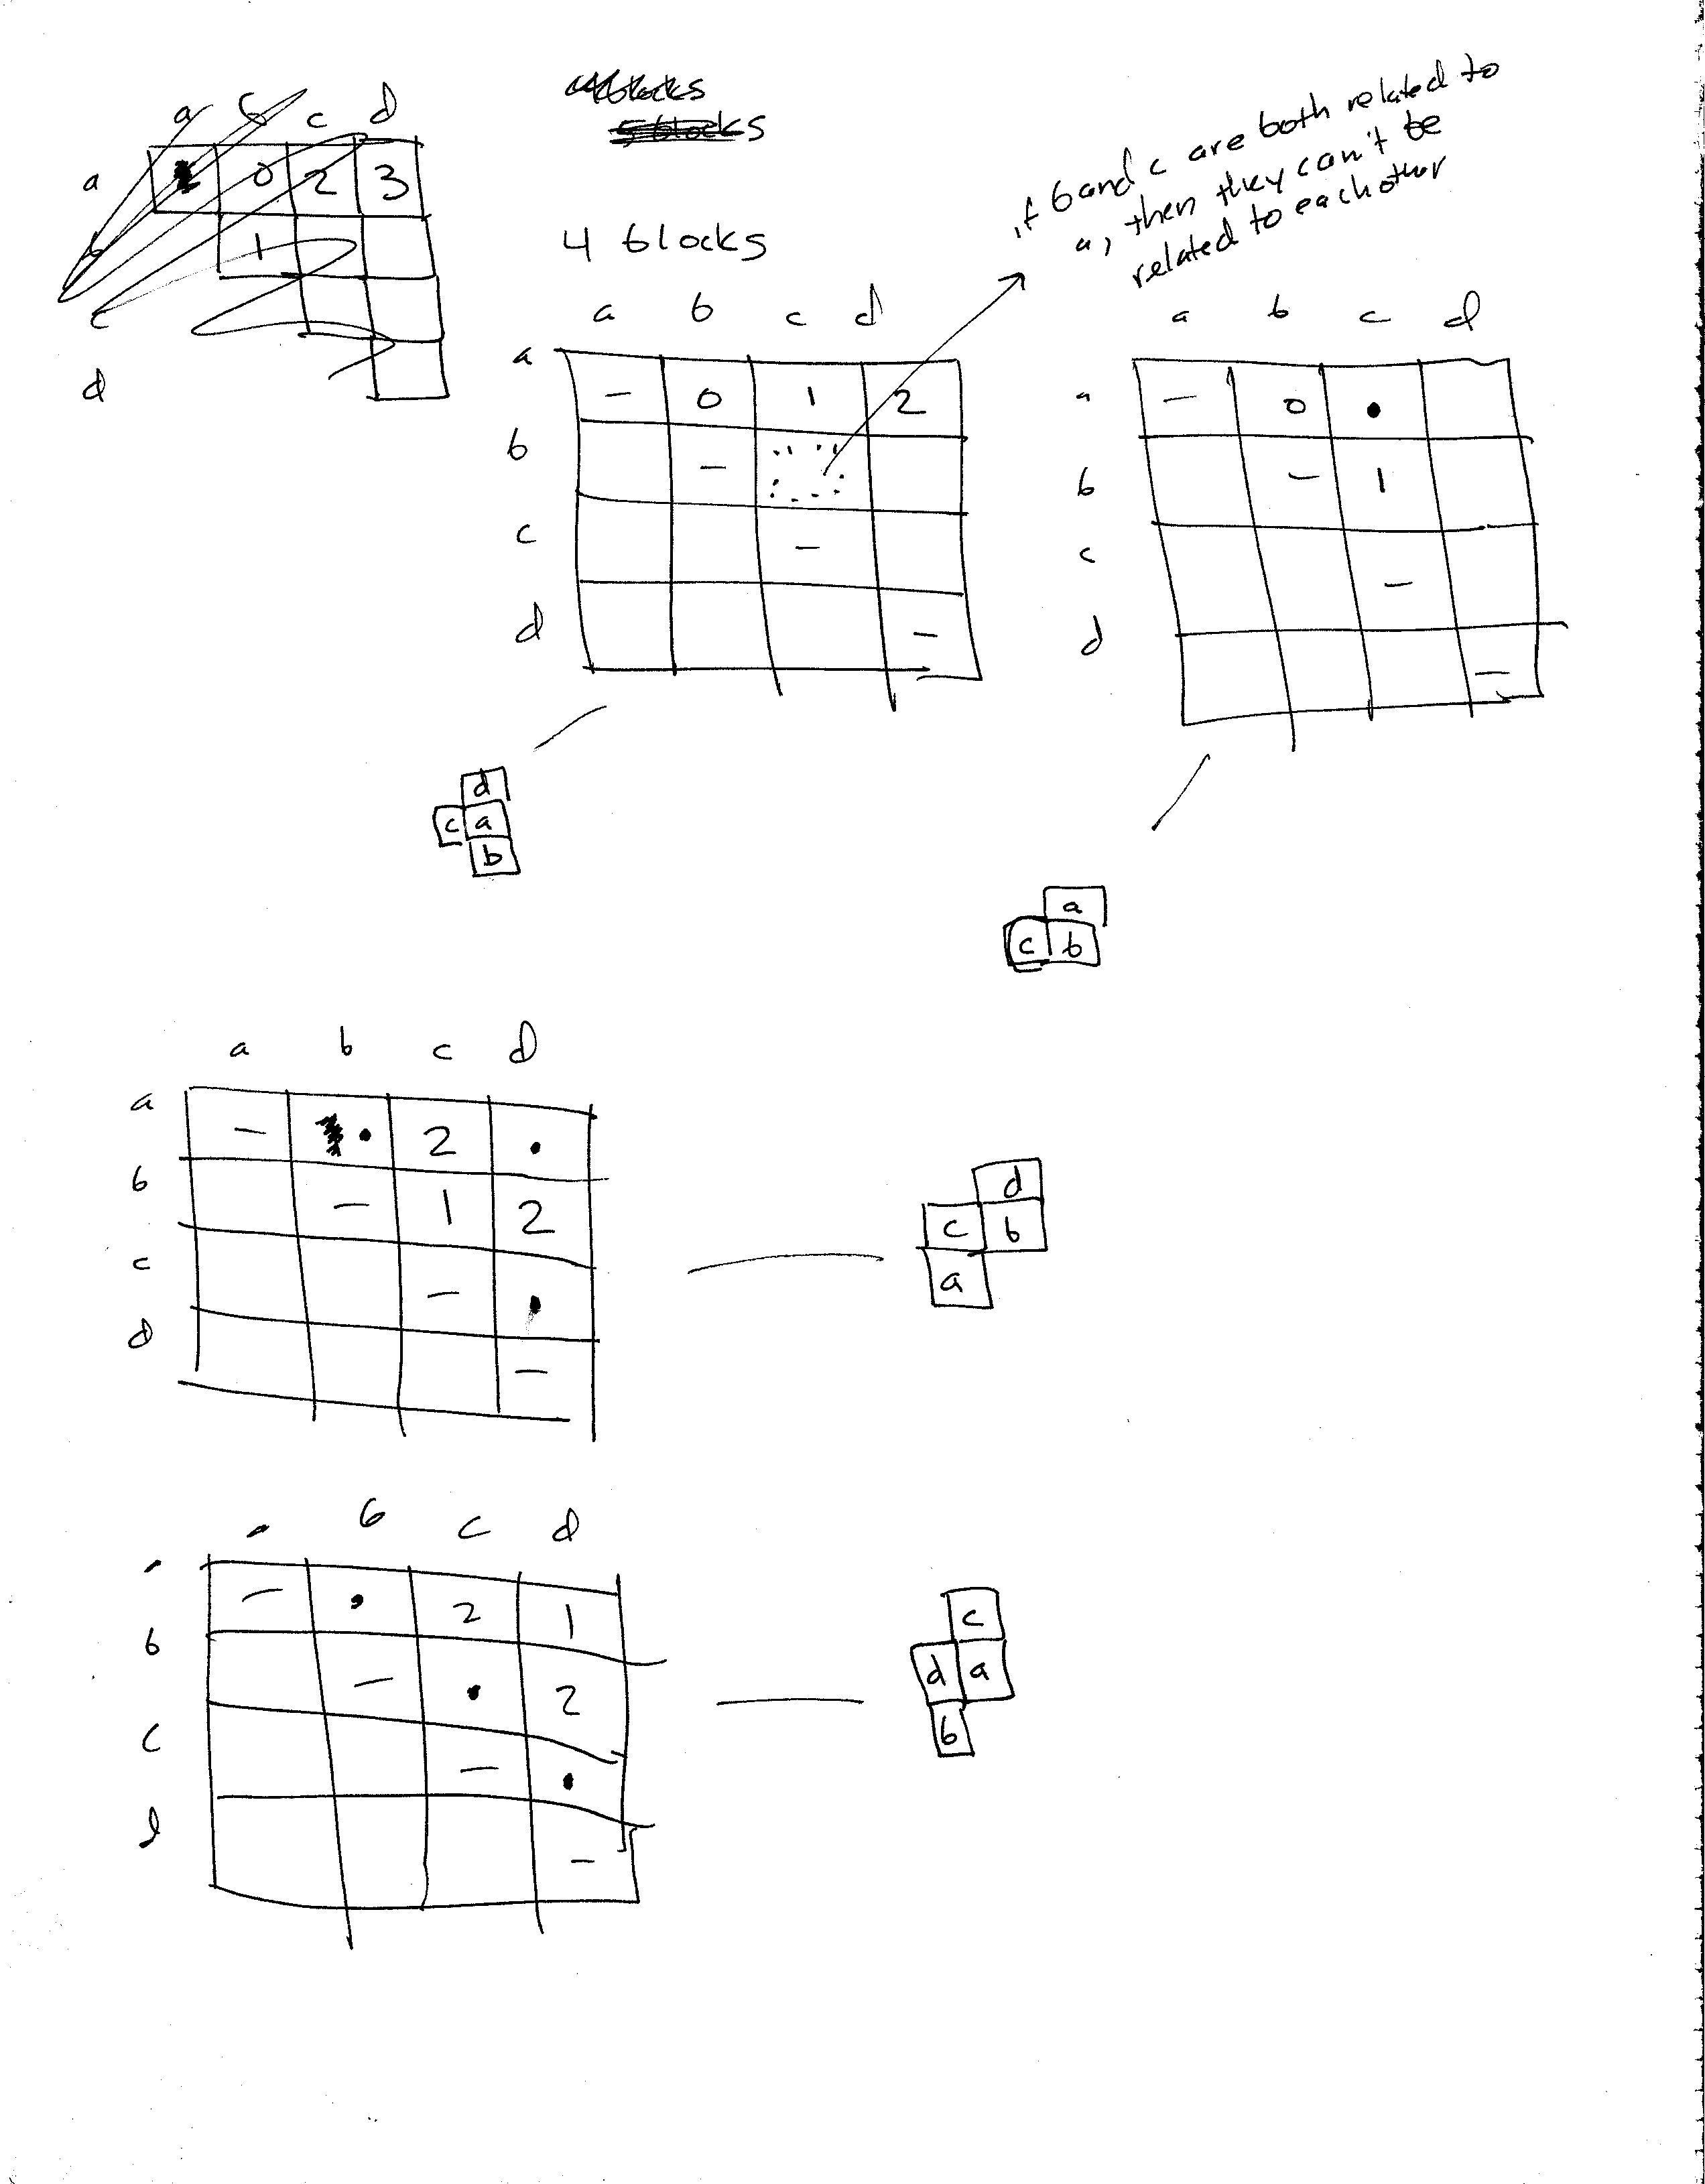 blocks
5 blocks
4 blocks
if b and c are both related to
a, then they can't be
related to each other
a b c d
a 0 2 3
b 1
c
d
a b c d
a - 0 1 2
b -
c -
d -
a b c d
a - 0 •
b - 1
c -
d -
d
c a
b
a
c b
a b c d
a - • 2 •
b - 1 2
c - •
d -
d
c b
a
a b c d
a - • 2 1
b - • 2
c - •
d -
c
d a
b